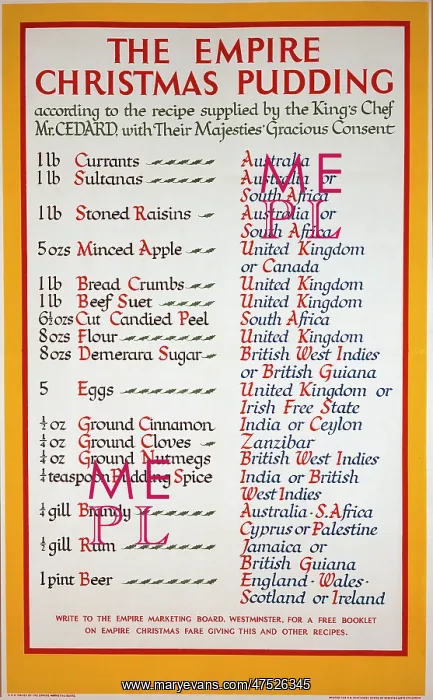 THE EMPIRE
CHRISTMAS PUDDING
according to the recipe supplied by the King's Chef
Mr. CEDARD, with Their Majesties' Gracious Consent
1 lb Currants Australia
1 lb Sultanas Australia or
South Africa
1 lb Stoned Raisins Australia or
South Africa
5 ozs Minced Apple United Kingdom
or Canada
1 lb Bread Crumbs United Kingdom
1 lb Beef Suet United Kingdom
6½ ozs Cut Candied Peel South Africa
8 ozs Flour United Kingdom
8 ozs Demerara Sugar British West Indies
or British Guiana
5 Eggs United Kingdom or
Irish Free State
½ oz Ground Cinnamon India or Ceylon
¼ oz Ground Cloves Zanzibar
¼ oz Ground Nutmegs British West Indies
¼ teaspoon Pudding Spice India or British
West Indies
¼ gill Brandy Australia · S. Africa
Cyprus or Palestine
½ gill Rum Jamaica or
British Guiana
1 pint Beer England · Wales ·
Scotland or Ireland
WRITE TO THE EMPIRE MARKETING BOARD, WESTMINSTER, FOR A FREE BOOKLET
ON EMPIRE CHRISTMAS FARE GIVING THIS AND OTHER RECIPES.
ME
PL
ME
PL
www.maryevans.com/47526345